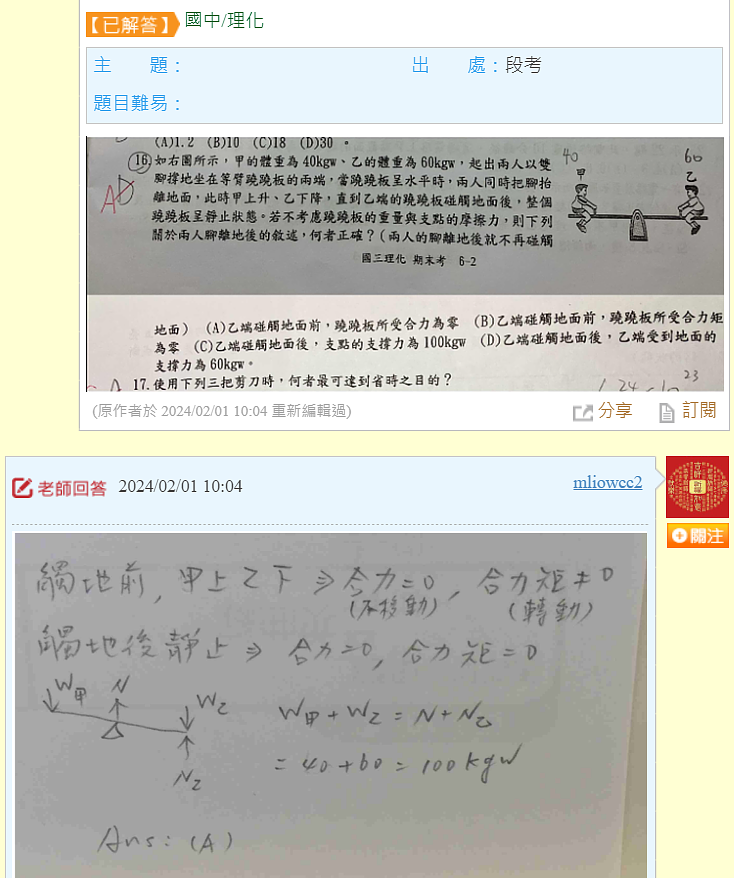 【已解答】國中/理化
主 題：
出 處：段考
題目難易：
(A)1.2 (B)10 (C)18 (D)30 。
16.如右圖所示，甲的體重為 40kgw、乙的體重為 60kgw，起出兩人以雙
腳撐地坐在等臂蹺蹺板的兩端，當蹺蹺板呈水平時，兩人同時把腳抬
離地面，此時甲上升、乙下降，直到乙端的蹺蹺板碰觸地面後，整個
蹺蹺板呈靜止狀態。若不考慮蹺蹺板的重量與支點的摩擦力，則下列
關於兩人腳離地後的敘述，何者正確？(兩人的腳離地後就不再碰觸
40
60
甲
乙
AD
國三理化 期末考 6-2
地面) (A)乙端碰觸地面前，蹺蹺板所受合力為零 (B)乙端碰觸地面前，蹺蹺板所受合力矩
為零 (C)乙端碰觸地面後，支點的支撐力為 100kgw (D)乙端碰觸地面後，乙端受到地面的
支撐力為 60kgw。
17.使用下列三把剪刀時，何者最可達到省時之目的？
23
(原作者於 2024/02/01 10:04 重新編輯過)
分享
訂閱
老師回答 2024/02/01 10:04
mliowcc2
關注
觸地前，甲上乙下 ⇒ 合力=0，合力矩≠0
(不移動) (轉動)
觸地後靜止 ⇒ 合力=0, 合力矩=0
W甲 N W乙
W甲+W乙 = N+N乙
= 40+60 = 100 kgw
N乙
Ans：(A)